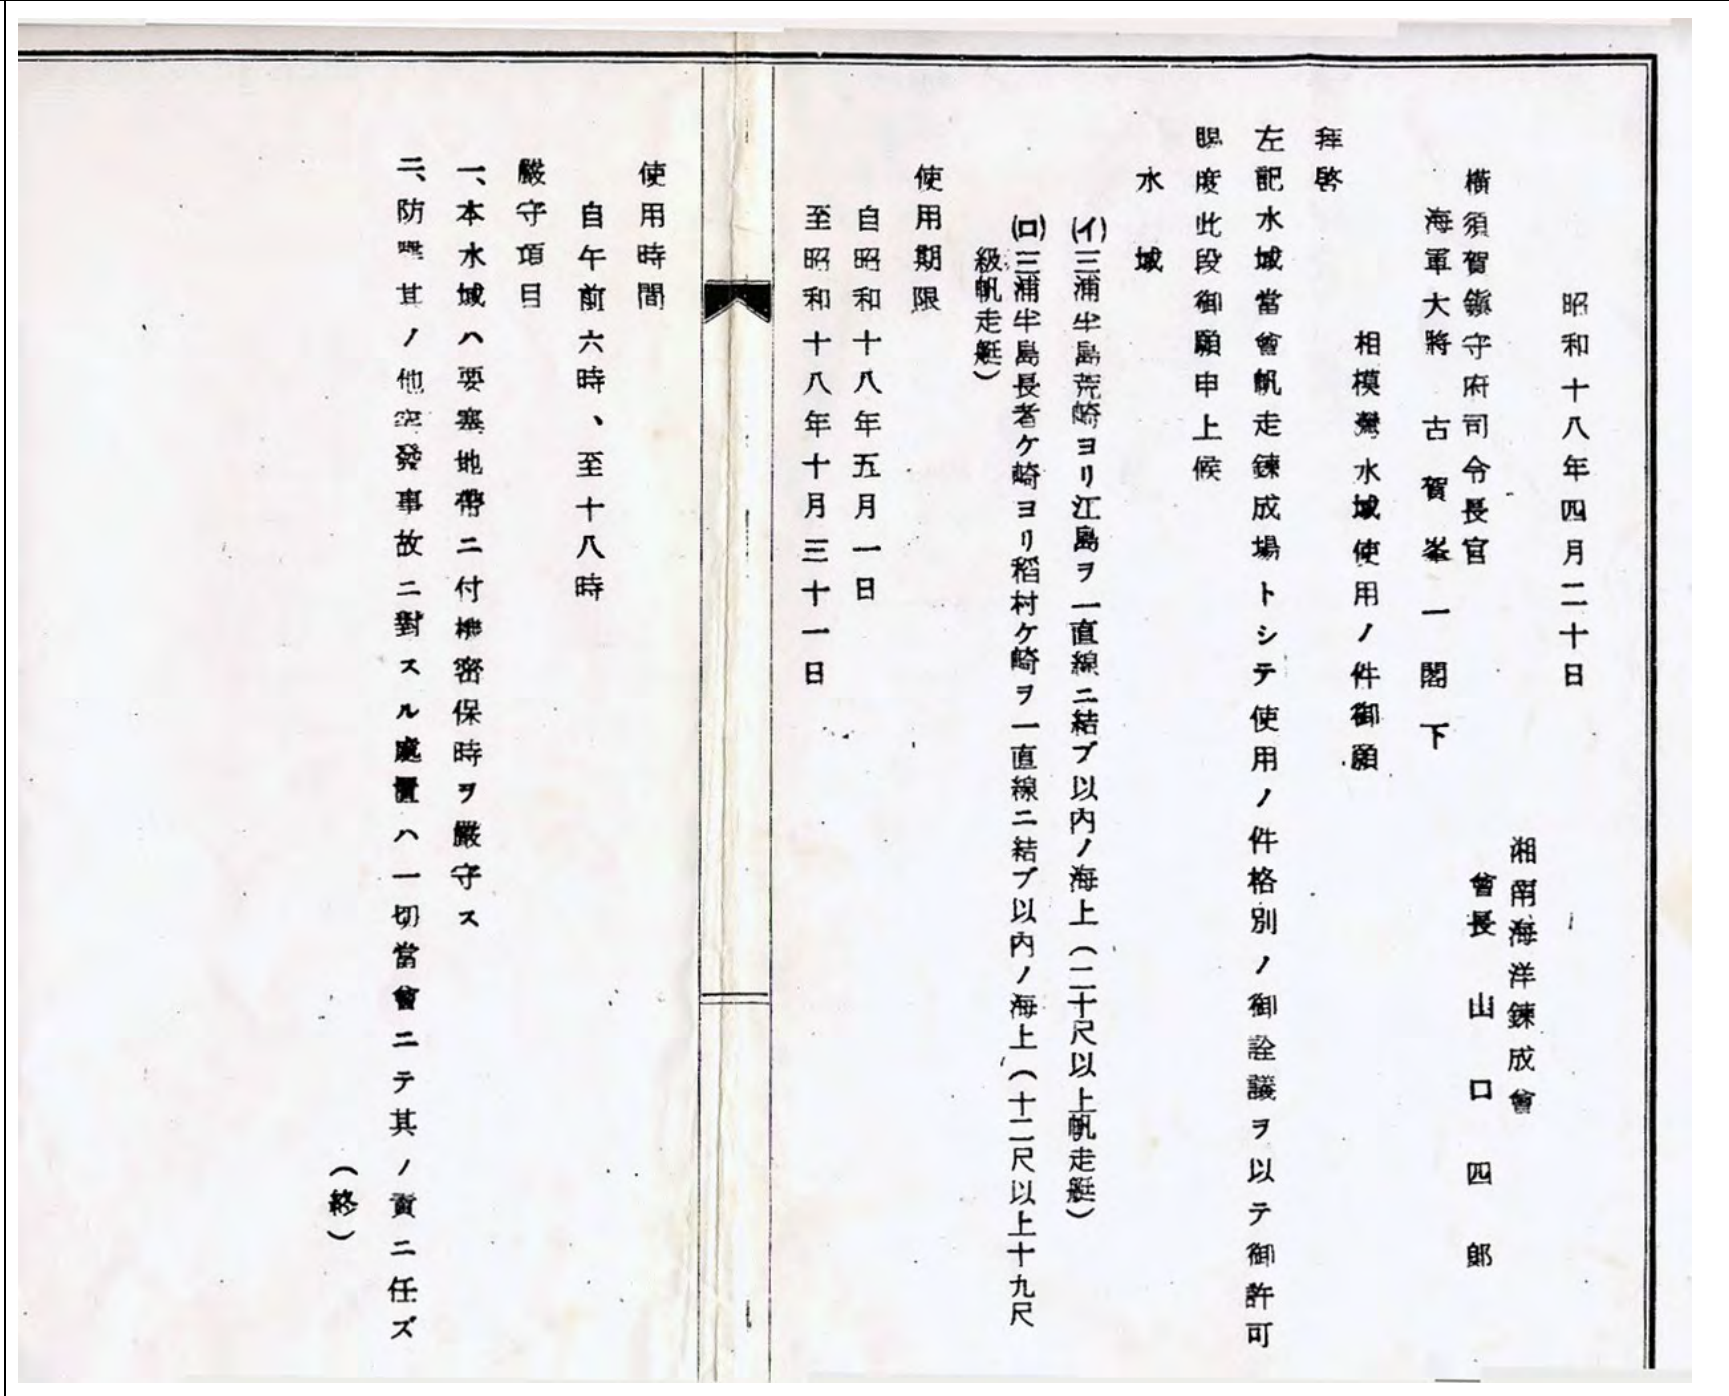 昭和十八年四月二十日
湘南海洋錬成會
會長 山口四郎
横須賀鎭守府司令長官
海軍大將 古賀峯一閣下
相模灣水域使用ノ件御願
拜啓
左記水域當會帆走錬成場トシテ使用ノ件格別ノ御詮議ヲ以テ御許可
賜度此段御願申上候
水域
(イ)三浦半島荒崎ヨリ江島ヲ一直線ニ結ブ以内ノ海上(二十尺以上帆走艇)
(ロ)三浦半島長者ケ崎ヨリ稻村ケ崎ヲ一直線ニ結ブ以内ノ海上(十二尺以上十九尺
級帆走艇)
使用期限
自昭和十八年五月一日
至昭和十八年十月三十一日
使用時間
自午前六時、至十八時
嚴守項目
一、本水域ハ要塞地帶ニ付機密保時ヲ嚴守ス
二、防諜其ノ他突發事故ニ對スル處置ハ一切當會ニテ其ノ責ニ任ズ
(終)